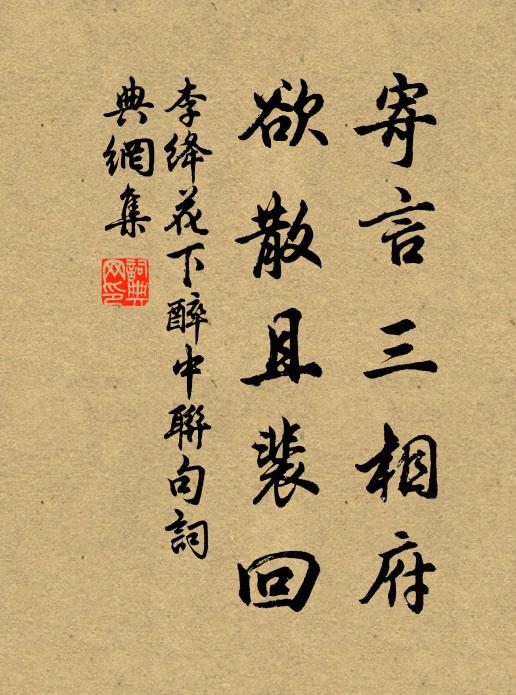 寄言三相府
欲散且裴回
李絳花下醉中聯句詞
典網集
詞典
网印